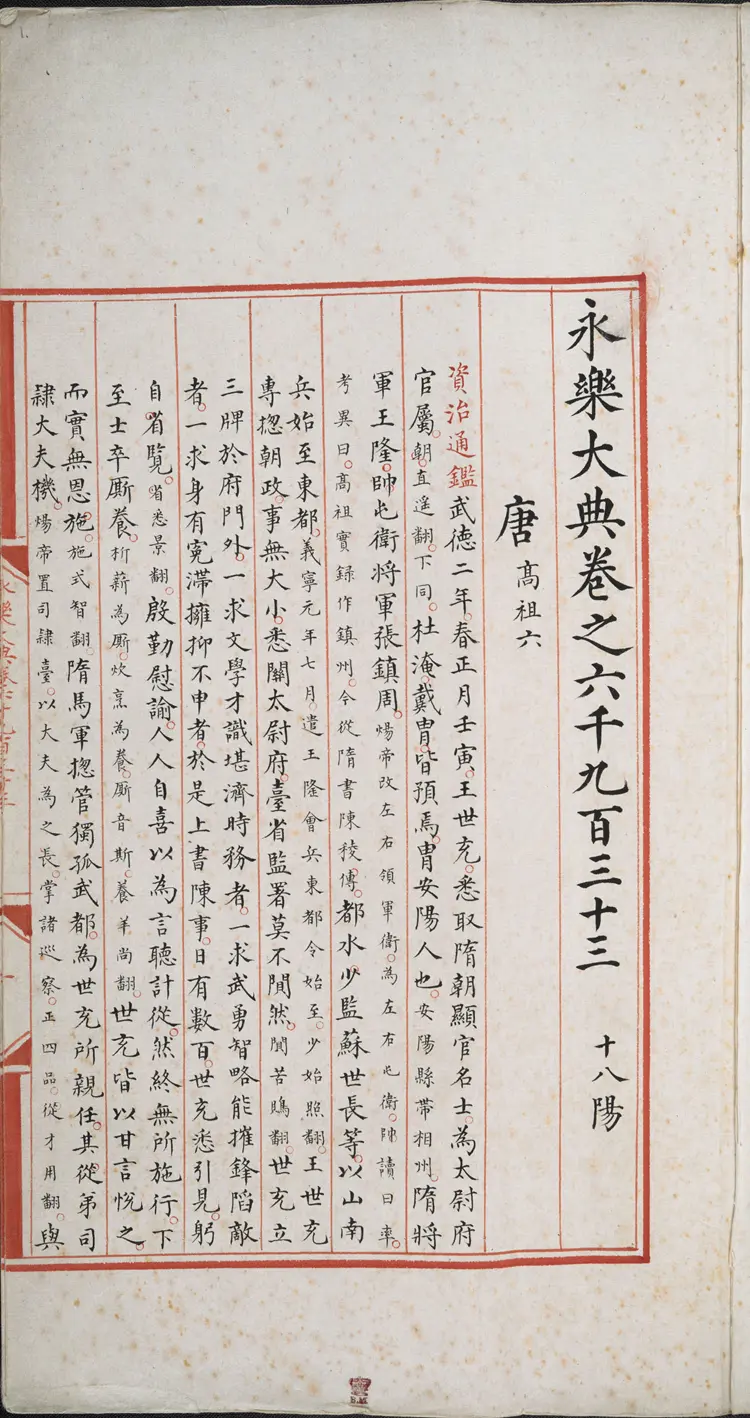 永樂大典卷之六千九百三十三 十八陽
唐 高祖六
資治通鑑武德二年。春正月壬寅。王世充。悉取隋朝顯官名士。為太尉府
官屬。朝。直遥翻。下同。杜淹。戴胄。皆預焉。胄安陽人也。安陽縣帶相州。隋將
軍王隆。帥屯衛將軍張鎮周。煬帝改左右領軍衛。為左右屯衛。帥讀曰率。
考異曰。高祖實録作鎮州。今從隋書陳稜傳。都水少監蘇世長等。以山南
兵始至東都。義寧元年七月。遣王隆會兵東都令始至。少始照翻。王世充
專揔朝政。事無大小。悉關太尉府。臺省監署莫不闃然。闃苦鶪翻。世充立
三牌於府門外。一求文學才識堪濟時務者。一求武勇智略能摧鋒陷敵
者。一求身有寃滯擁抑不申者。於是上書陳事。日有數百。世充悉引見。躬
自省覽。省悉景翻。殷勤慰諭。人人自喜以為言聽計從。然終無所施行。下
至士卒厮養。析薪為厮。炊烹為養。厮音斯。養羊尚翻。世充皆以甘言悅之。
而實無恩施。施式智翻。隋馬軍揔管獨孤武都。為世充所親任。其從弟司
隸大夫機。煬帝置司隸臺。以大夫為之長。掌諸巡察。正四品。從才用翻。與